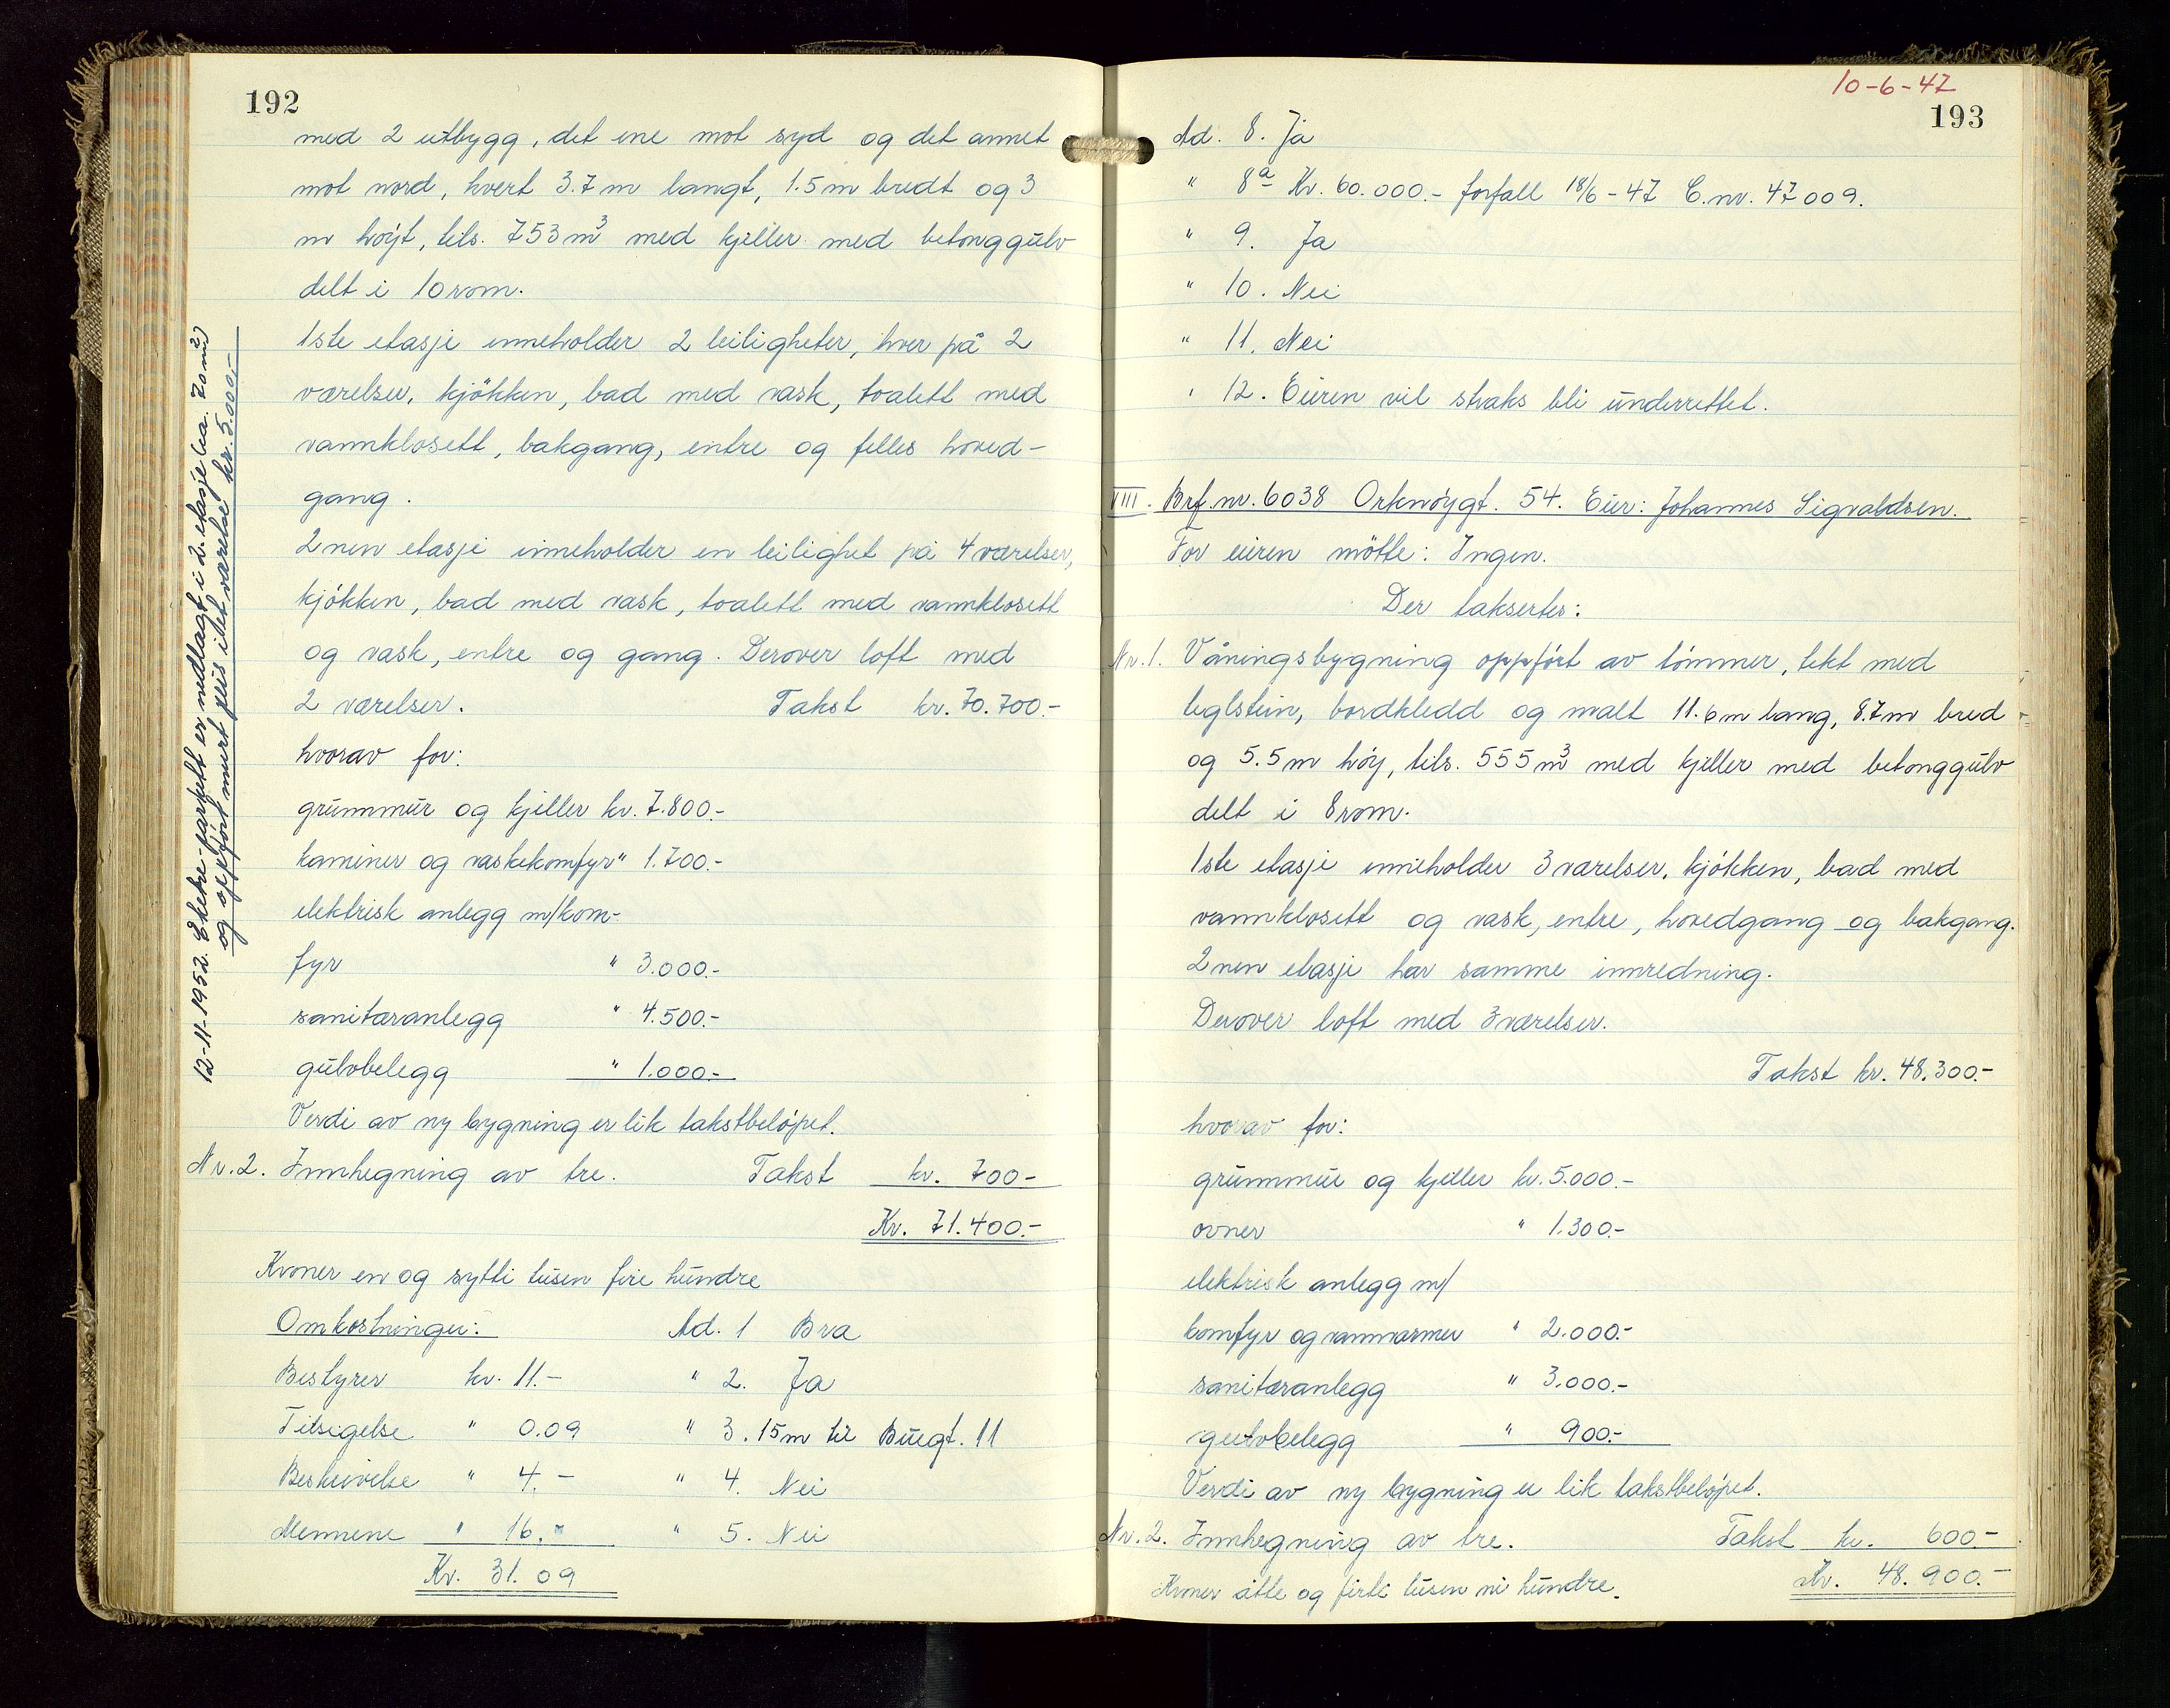 192
med 2 utbygg, det ene mot syd og det annet
mot nord, hvert 3.7 m langt, 1.5 m bredt og 3
m høyt, tils. 753 m³ med kjeller med betonggulv
delt i 10 rom.
1ste etasje inneholder 2 leiligheter, hver på 2
værelser, kjökken, bad med vask, toalett med
vannklosett, bakgang, entre og felles hoved-
gang.
2nen etasje inneholder en leilighet på 4 værelser,
kjökken, bad med vask, toalett med vannklosett
og vask, entre og gang. Derover loft med
2 værelser. Takst kr. 70.700.-
hvorav for:
grunnmur og kjeller kr. 7.800.-
kaminer og vaskekomfyr " 1.700.-
elektrisk anlegg m/kom-
fyr " 3.000.-
sanitæranlegg " 4.500.-
gulvbelegg " 1.000.-
Verdi av ny bygning er lik takstbeløpet.
Nr. 2. Innhegning av tre. Takst kr. 700-
Kr. 71.400.-
Kroner en og sytti tusen fire hundre
Omkostninger: Ad. 1 Bra
Bestyrer kr. 11.- " 2. Ja
Tilsigelse " 0.09 " 3. 15m til Buegt. 11
Beskrivelse " 4.- " 4. Nei
Mennene " 16.- " 5. Nei
Kr. 31.09
12-11-1952. Ekeke-parkett er nedlagt i 2. etasje (ca. 70 m²)
og oppfört murt peis i det værelse kr. 5.000.-
10-6-47
193
Ad. 8. Ja
" 8a Kr. 60.000.- forfall 18/6-47 C.nr. 47009.
" 9. Ja
" 10. Nei
" 11. Nei
" 12. Eieren vil straks bli underrettet.
VIII. Brf. nr. 6038 Orknøygt. 54. Eier: Johannes Sigvaldsen.
For eieren mötte: Ingen.
Der taksertes:
Nr. 1. Våningsbygning oppfört av tömmer, tekt med
teglstein, bordkledd og malt 11.6 m lang, 8.7 m bred
og 5.5 m høy, tils. 555 m³ med kjeller med betonggulv
delt i 8 rom.
1ste etasje inneholder 3 værelser, kjökken, bad med
vannklosett og vask, entre, hovedgang og bakgang.
2nen etasje har samme innredning.
Derover loft med 3 værelser.
Takst kr. 48.300.-
hvorav for:
grunnmur og kjeller kr. 5.000.-
ovner " 1.300.-
elektrisk anlegg m/
komfyr og vannvarmer " 2.000.-
sanitæranlegg " 3.000.-
gulvbelegg " 900.-
Verdi av ny bygning er lik takstbeløpet.
Nr. 2. Innhegning av tre. Takst kr. 600.-
Kroner åtte og firti tusen ni hundre. Kr. 48.900.-